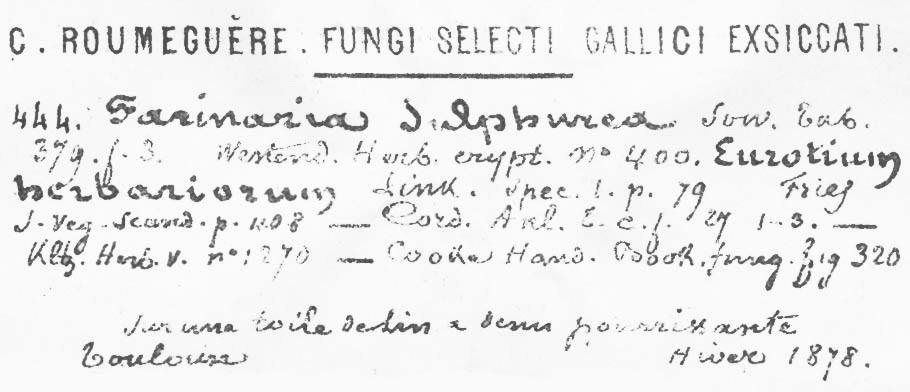 C. ROUMEGUÈRE. FUNGI SELECTI GALLICI EXSICCATI.
444. Farinaria Sulphurea Sow. Tab.
379. f. 3. Westend. Herb. crypt. nº 400. Eurotium
herbariorum Link. Spec. 1. p. 79 Fries
S. Veg. Scand. p. — Cord. f. 27 1-3. —
Kltz. Herb. v. nº 1270 — Cooke Hand. Book. fung. fig 320
Sur une toile de lin a demi pourrissante
Toulouse Hiver 1878.